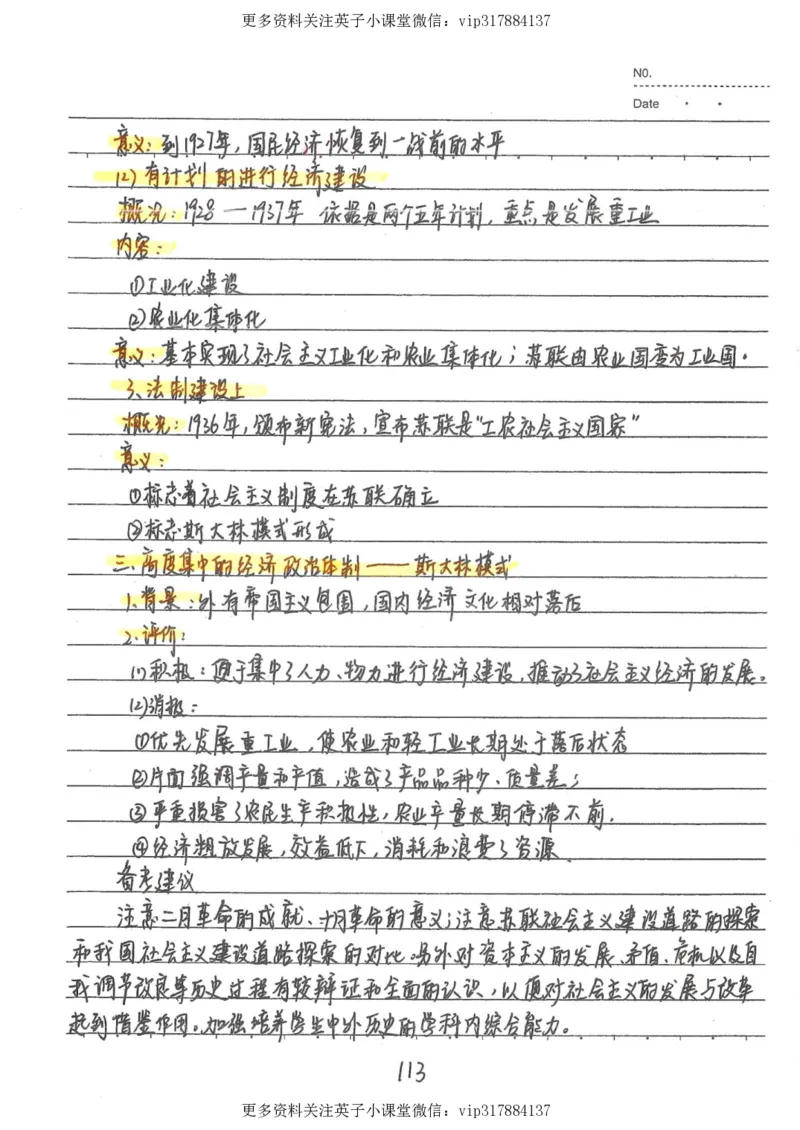 更多资料关注英子小课堂微信：vip317884137
NO.
Date
意义：到1927年，国民经济恢复到一战前的水平
(2)有计划的进行经济建设
概况：1928—1937年 依据是两个五年计划，重点是发展重工业
内容：
①工业化建设
②农业化集体化
意义：基本实现了社会主义工业化和农业集体化；苏联由农业国变为工业国。
3、法制建设上
概况：1936年，颁布新宪法，宣布苏联是“工农社会主义国家”
意义：
①标志着社会主义制度在苏联确立
②标志斯大林模式形成
三、高度集中的经济政治体制——斯大林模式
1.背景：外有帝国主义包围，国内经济文化相对落后
2.评价：
(1)积极：便于集中了人力、物力进行经济建设，推动了社会主义经济的发展。
(2)消极：
①优先发展重工业，使农业和轻工业长期处于落后状态
②片面强调产量和产值，造成了产品品种少、质量差；
③严重损害了农民生产积极性，农业产量长期停滞不前.
④经济粗放发展，效益低下，消耗和浪费了资源
备考建议
注意二月革命的成就、十月革命的意义；注意苏联社会主义建设道路的探索
和我国社会主义建设道路探索的对比。另外对资本主义的发展、矛盾、危机以及自
我调节改良等历史过程有较辩证和全面的认识，以便对社会主义的发展与改革
起到借鉴作用。加强培养学生中外历史的学科内综合能力。
113
更多资料关注英子小课堂微信：vip317884137